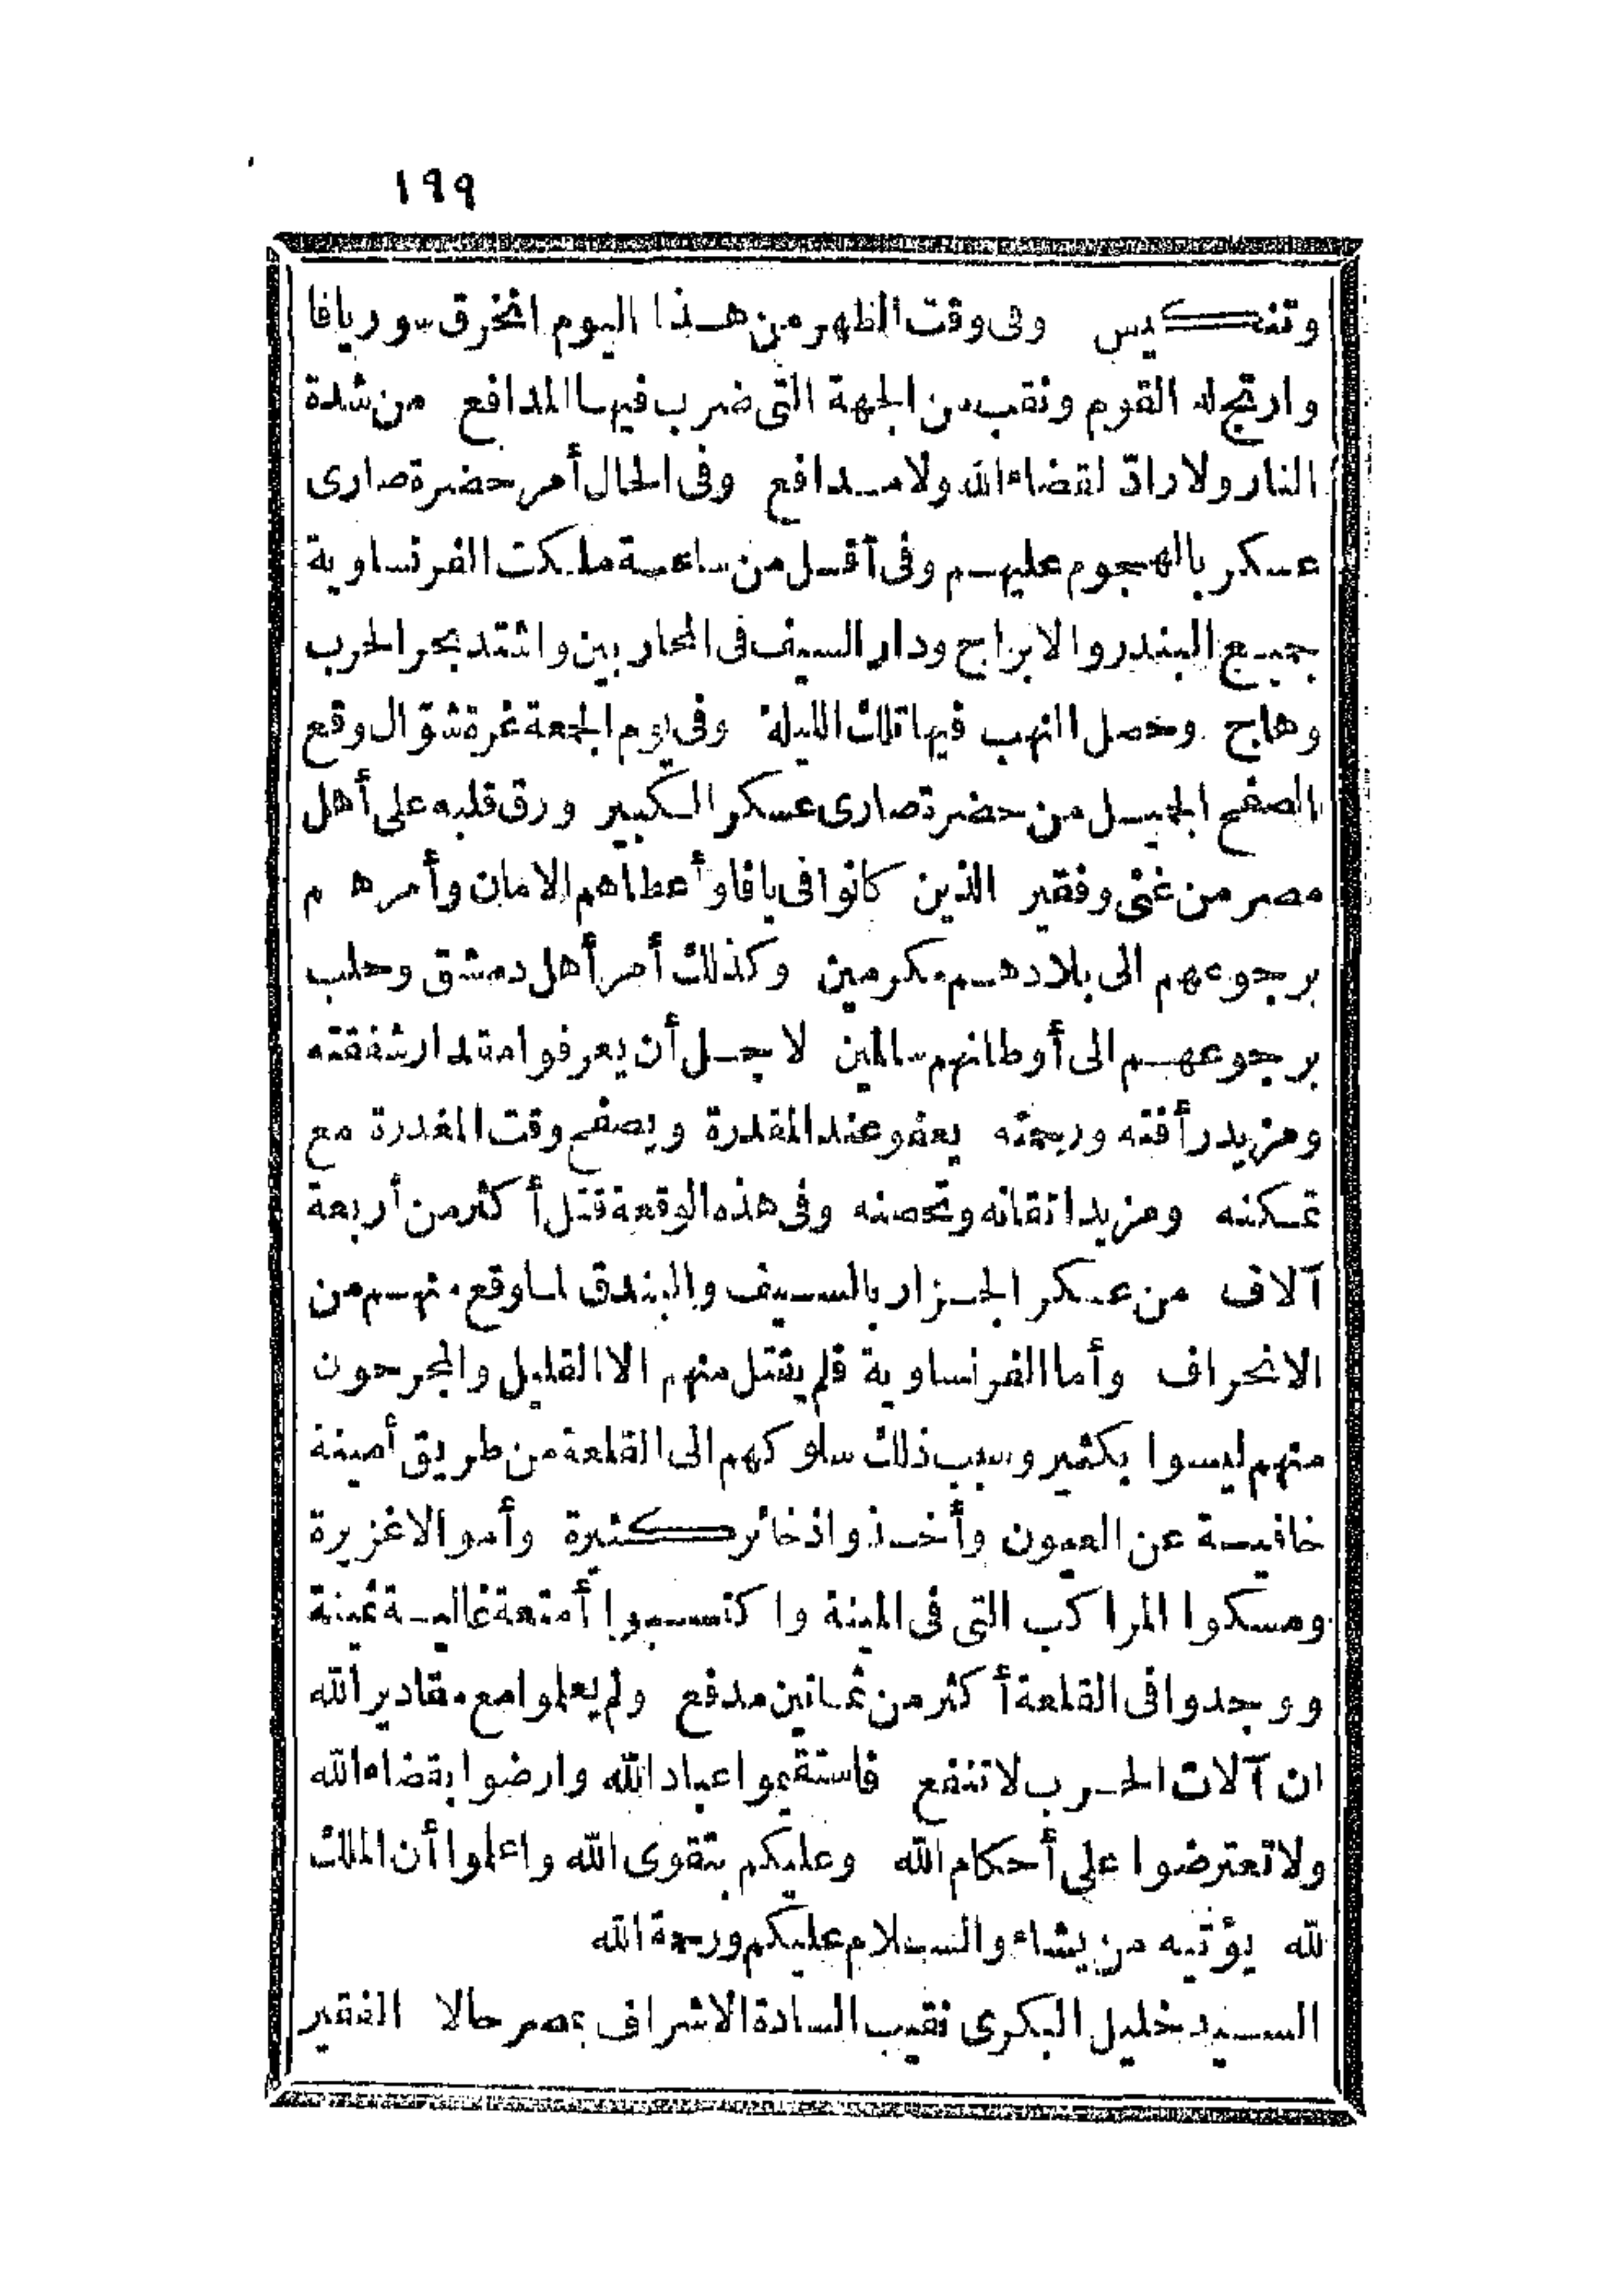 ١٩٩
وتنكيس وفى وقت الظهر من هذا اليوم انخرق سور يافا
وارتج له القوم ونقب من الجهة التى ضرب فيها المدافع من شدة
النار ولا رادّ لقضاء الله ولا مدافع وفى الحال أمر حضرة صارى
عسكر بالهجوم عليهم وفى أقل من ساعة ملكت الفرنساوية
جميع البندر والابراج ودار السيف فى المحاربين واشتد بحر الحرب
وهاج وحصل النهب فيها تلك الليلة وفى يوم الجمعة غرة شوّال وقع
الصفح الجميل من حضرة صارى عسكر الكبير ورق قلبه على أهل
مصر من غنى وفقير الذين كانوا فى يافا وأعطاهم الامان وأمرهم
برجوعهم الى بلادهم مكرمين وكذلك أمر أهل دمشق وحلب
برجوعهم الى أوطانهم سالمين لاجل أن يعرفوا مقدار شفقته
ومزيد رأفته ورحمته يعفو عند المقدرة ويصفح وقت المغدرة مع
تمكنه ومزيد اتقانه وتحصنه وفى هذه الوقعة قتل أكثر من أربعة
آلاف من عسكر الجزار بالسيف والبندق لما وقع منهم من
الانحراف وأما الفرنساوية فلم يقتل منهم الا القليل والمجرحون
منهم ليسوا بكثير وسبب ذلك سلوكهم الى القلعة من طريق أمينة
خافية عن العيون وأخذوا ذخائر كثيرة وأموالا غزيرة
ومسكوا المراكب التى فى المينة واكتسبوا أمتعة غالية ثمينة
ووجدوا فى القلعة أكثر من ثمانين مدفع ولم يعلموا مع مقادير الله
ان آلات الحرب لا تنفع فاستقيموا عباد الله وارضوا بقضاء الله
ولا تعترضوا على أحكام الله وعليكم بتقوى الله واعلموا أن الملك
لله يؤتيه من يشاء والسلام عليكم ورحمة الله
السيد خليل البكرى نقيب السادة الاشراف بمصر حالا الفقير